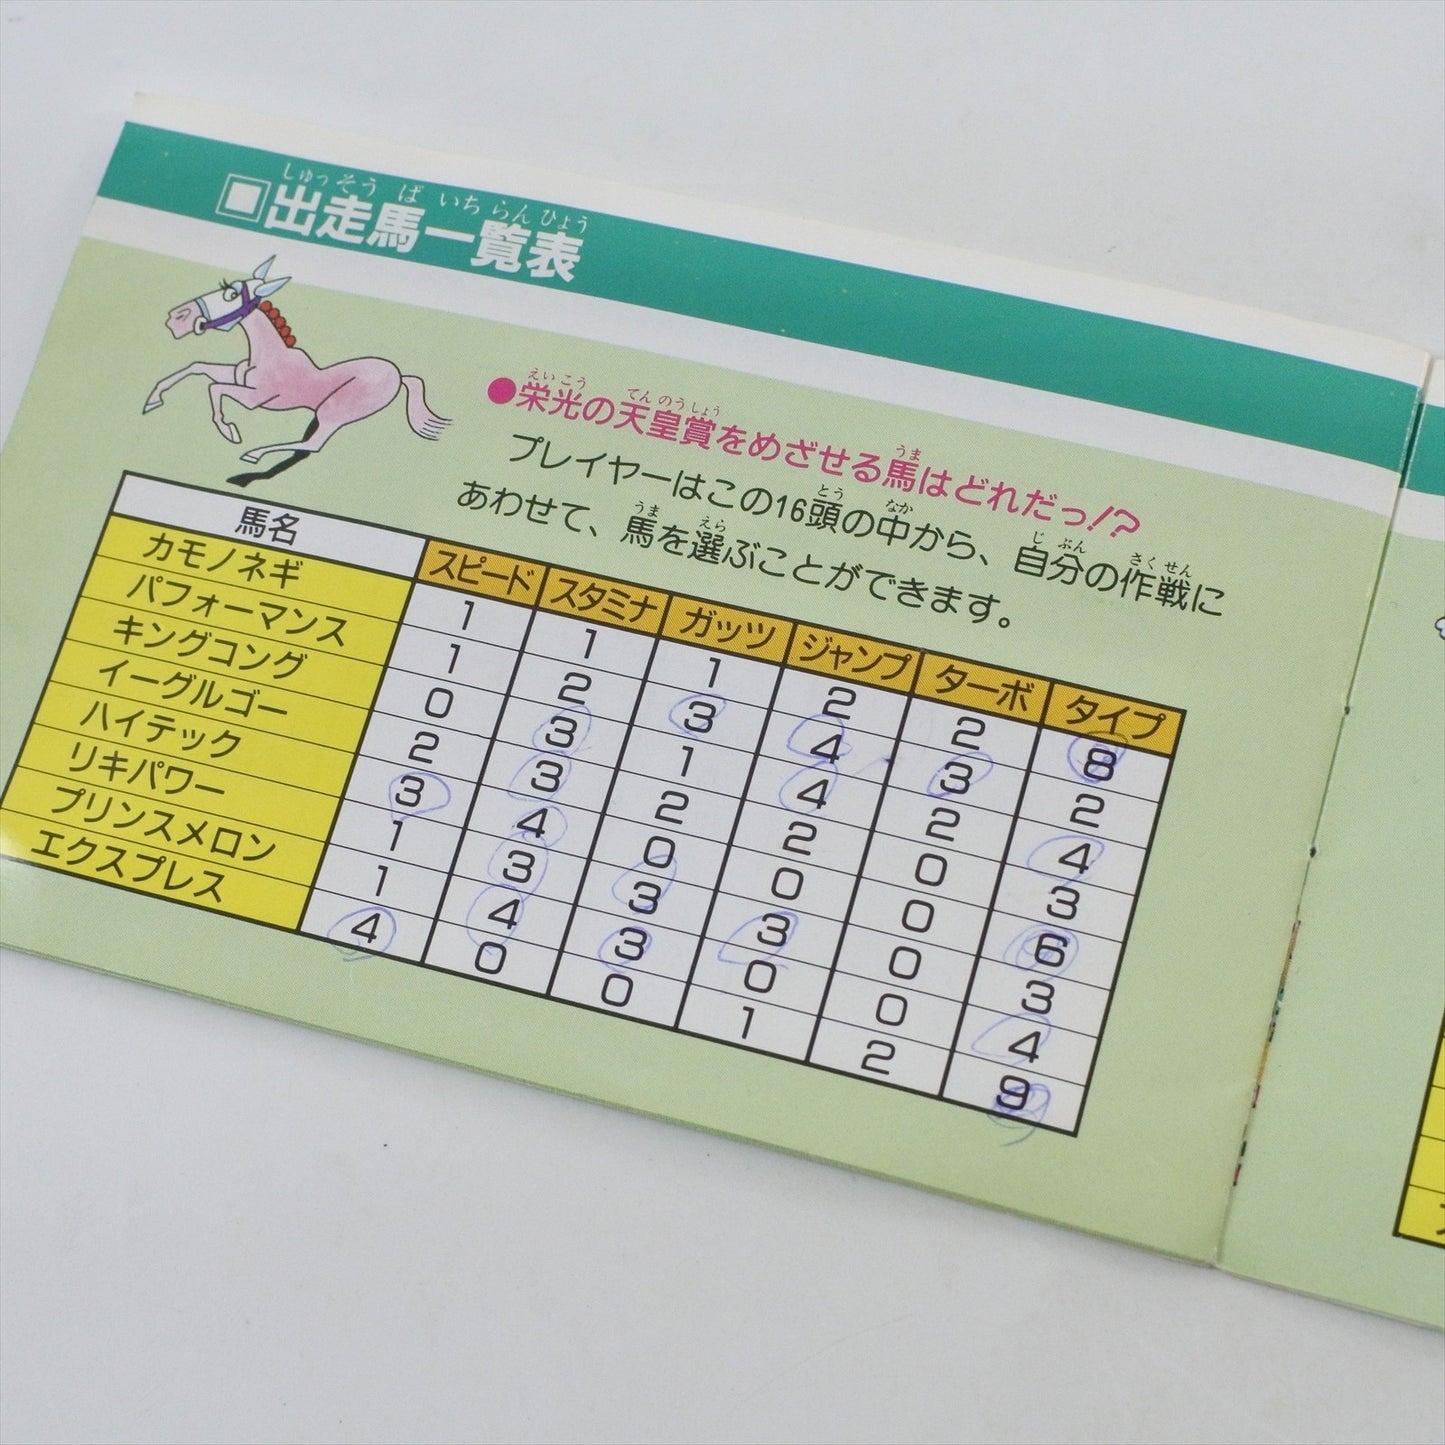 しゅっそう ば いち らん ひょう
■出走馬一覧表
えいこう てんのうしょう うま
●栄光の天皇賞をめざせる馬はどれだっ!?
とう なか じ ぶん さく せん
プレイヤーはこの16頭の中から、自分の作戦に
うま えら
あわせて、馬を選ぶことができます。
馬名 スピード スタミナ ガッツ ジャンプ ターボ タイプ
カモノネギ 1 1 1 2 2 8
パフォーマンス 1 2 3 4 3 2
キングコング 0 3 1 4 2 4
イーグルゴー 2 3 2 2 0 3
ハイテック 3 4 0 0 0 6
リキパワー 1 3 3 3 0 3
プリンスメロン 1 4 3 0 0 4
エクスプレス 4 0 0 1 2 9